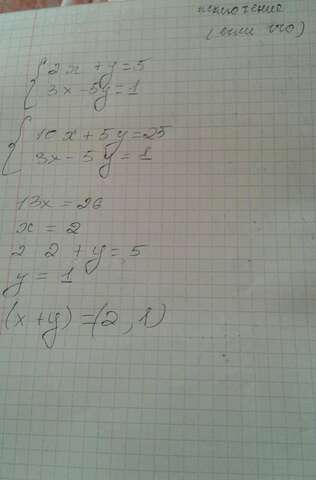 (если что)
2x + y = 5
3x - 5y = 1
10x + 5y = 25
3x - 5y = 1
13x = 26
x = 2
2 2 + y = 5
y = 1
(x + y) = (2, 1)